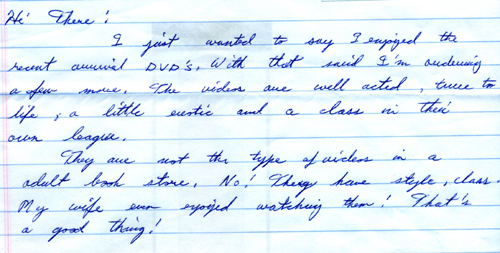 Hi There!
I just wanted to say I enjoyed the
recent arrival DVD's. With that said I'm ordering
a few more. The videos are well acted, true to
life, a little exotic and a class in their
own league.
They are not the type of videos in a
adult book store. No! They have style, class.
My wife even enjoyed watching them! That's
a good thing!